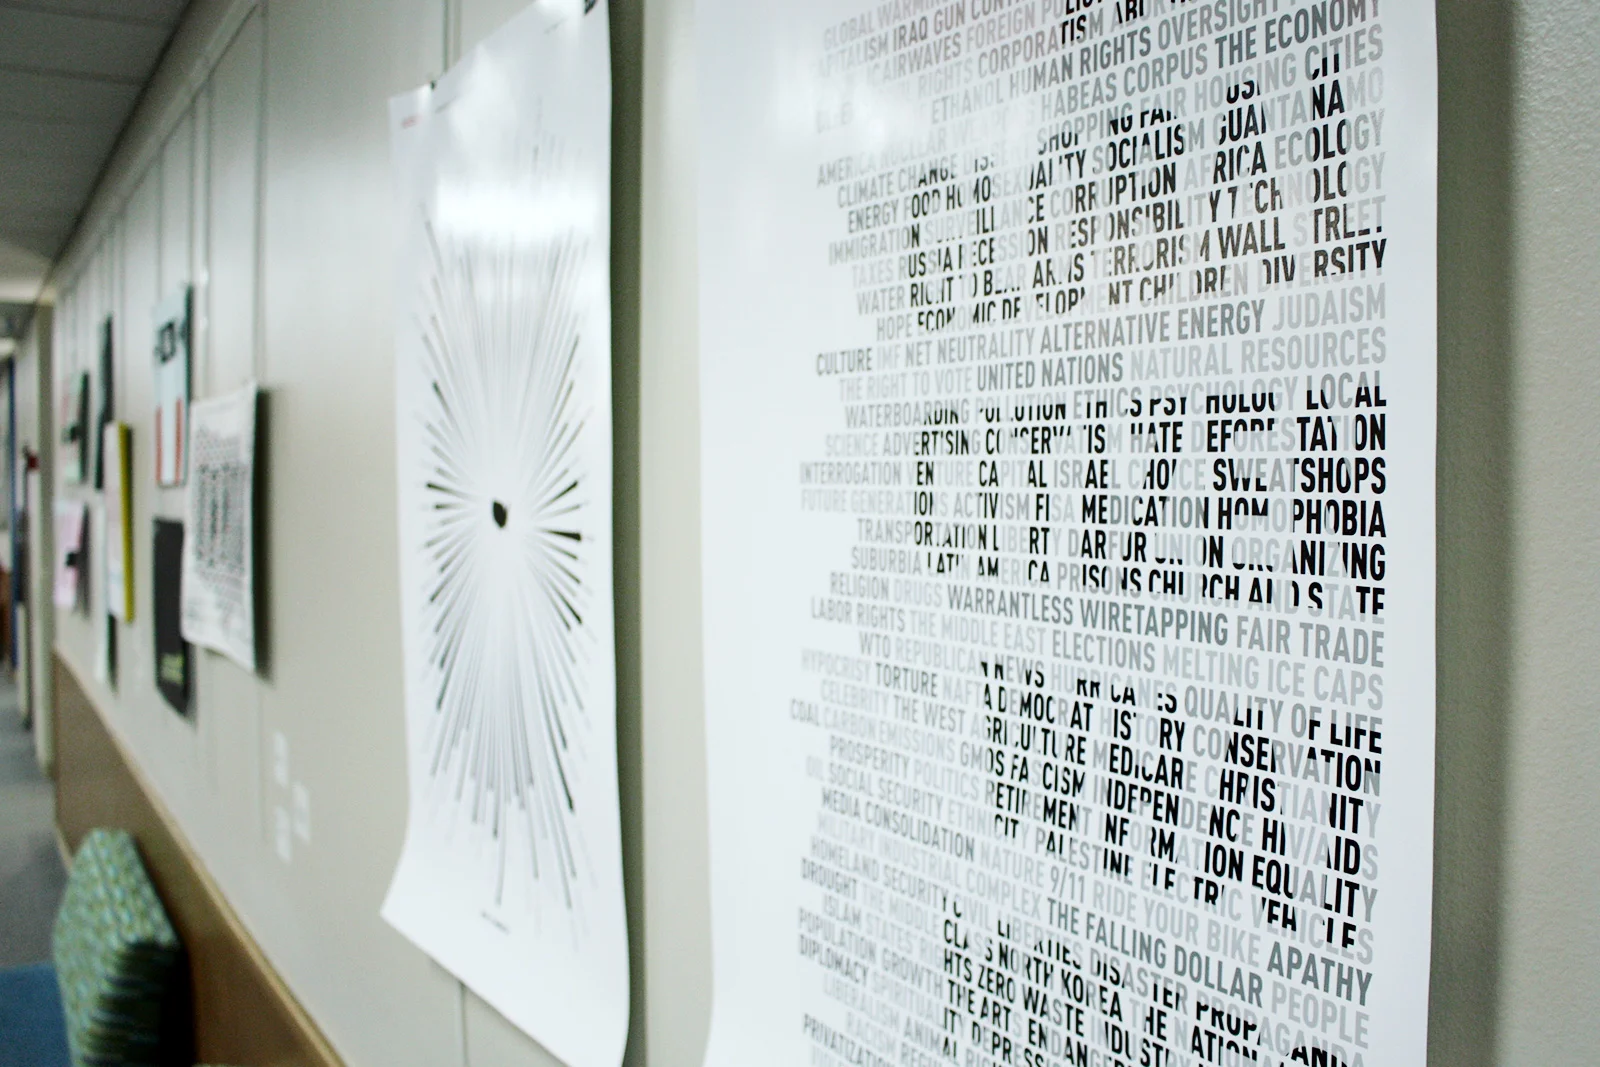 GLOBAL WARMING
CAPITALISM IRAQ GUN CONTROL
AIRWAVES FOREIGN POLICY
RIGHTS CORPORATISM ABORTION
ETHANOL HUMAN RIGHTS OVERSIGHT
HABEAS CORPUS THE ECONOMY
AMERICA NUCLEAR WEAPONS SHOPPING FAIR HOUSING CITIES
CLIMATE CHANGE SOCIALISM GUANTANAMO
ENERGY FOOD HOMOSEXUALITY CORRUPTION AFRICA ECOLOGY
IMMIGRATION SURVEILLANCE RESPONSIBILITY TECHNOLOGY
TAXES RUSSIA RECESSION TERRORISM WALL STREET
WATER RIGHT TO BEAR ARMS CHILDREN DIVERSITY
HOPE ECONOMIC DEVELOPMENT ALTERNATIVE ENERGY JUDAISM
CULTURE IMF NET NEUTRALITY UNITED NATIONS NATURAL RESOURCES
THE RIGHT TO VOTE
WATERBOARDING POLLUTION ETHICS PSYCHOLOGY LOCAL
SCIENCE ADVERTISING CONSERVATISM HATE DEFORESTATION
INTERROGATION VENTURE CAPITAL ISRAEL CHOICE SWEATSHOPS
FUTURE GENERATIONS ACTIVISM FISA MEDICATION HOMOPHOBIA
TRANSPORTATION LIBERTY DARFUR UNION ORGANIZING
SUBURBIA LATIN AMERICA PRISONS CHURCH AND STATE
RELIGION DRUGS WARRANTLESS WIRETAPPING FAIR TRADE
LABOR RIGHTS THE MIDDLE EAST ELECTIONS MELTING ICE CAPS
WTO REPUBLICAN NEWS HURRICANES QUALITY OF LIFE
HYPOCRISY TORTURE NAFTA DEMOCRAT HISTORY CONSERVATION
CELEBRITY THE WEST AGRICULTURE MEDICARE CHRISTIANITY
COAL CARBON EMISSIONS GMOS FASCISM INDEPENDENCE HIV/AIDS
PROSPERITY POLITICS RETIREMENT INFORMATION EQUALITY
OIL SOCIAL SECURITY ETHNICITY PALESTINE ELECTRIC VEHICLES
MEDIA CONSOLIDATION NATURE 9/11 RIDE YOUR BIKE APATHY
MILITARY INDUSTRIAL COMPLEX THE FALLING DOLLAR PEOPLE
HOMELAND SECURITY CIVIL LIBERTIES DISASTER PROPAGANDA
DROUGHT THE MIDDLE CLASS NORTH KOREA THE NATIONAL
ISLAM STATES RIGHTS ZERO WASTE INDUSTRY
POPULATION GROWTH THE ARTS
DIPLOMACY SPIRITUALITY DEPRESSION
LIBERALISM ANIMAL
RACISM
PRIVATIZATION